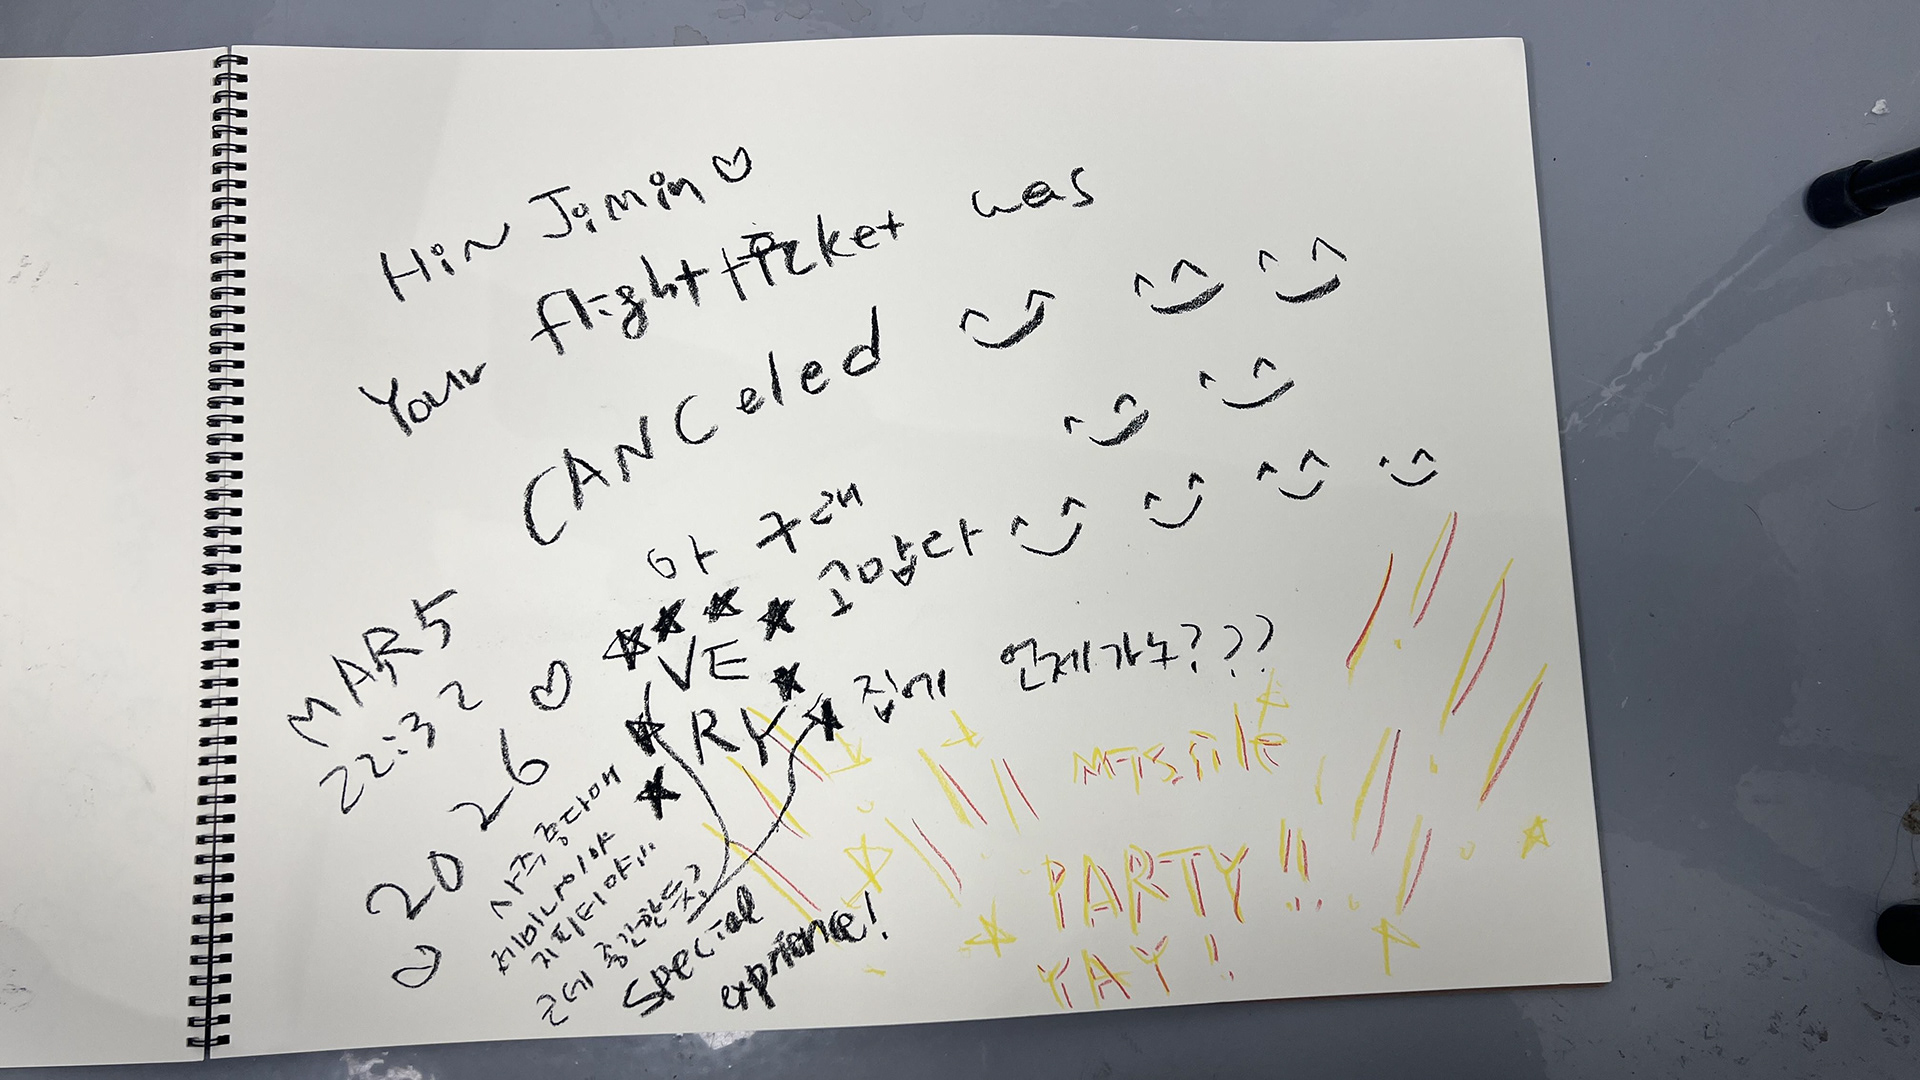 Hi~ Jimin♡
Your flight ticket was
CANCeled
아 구래
고맙다
MAR5
22:32
2026
VE
RY
집에 언제가노???
사축중다매
제미나이야
지피티야!!!
근데 중간한듯?
special
exprience!
MISSile
PARTY!!
YAY!